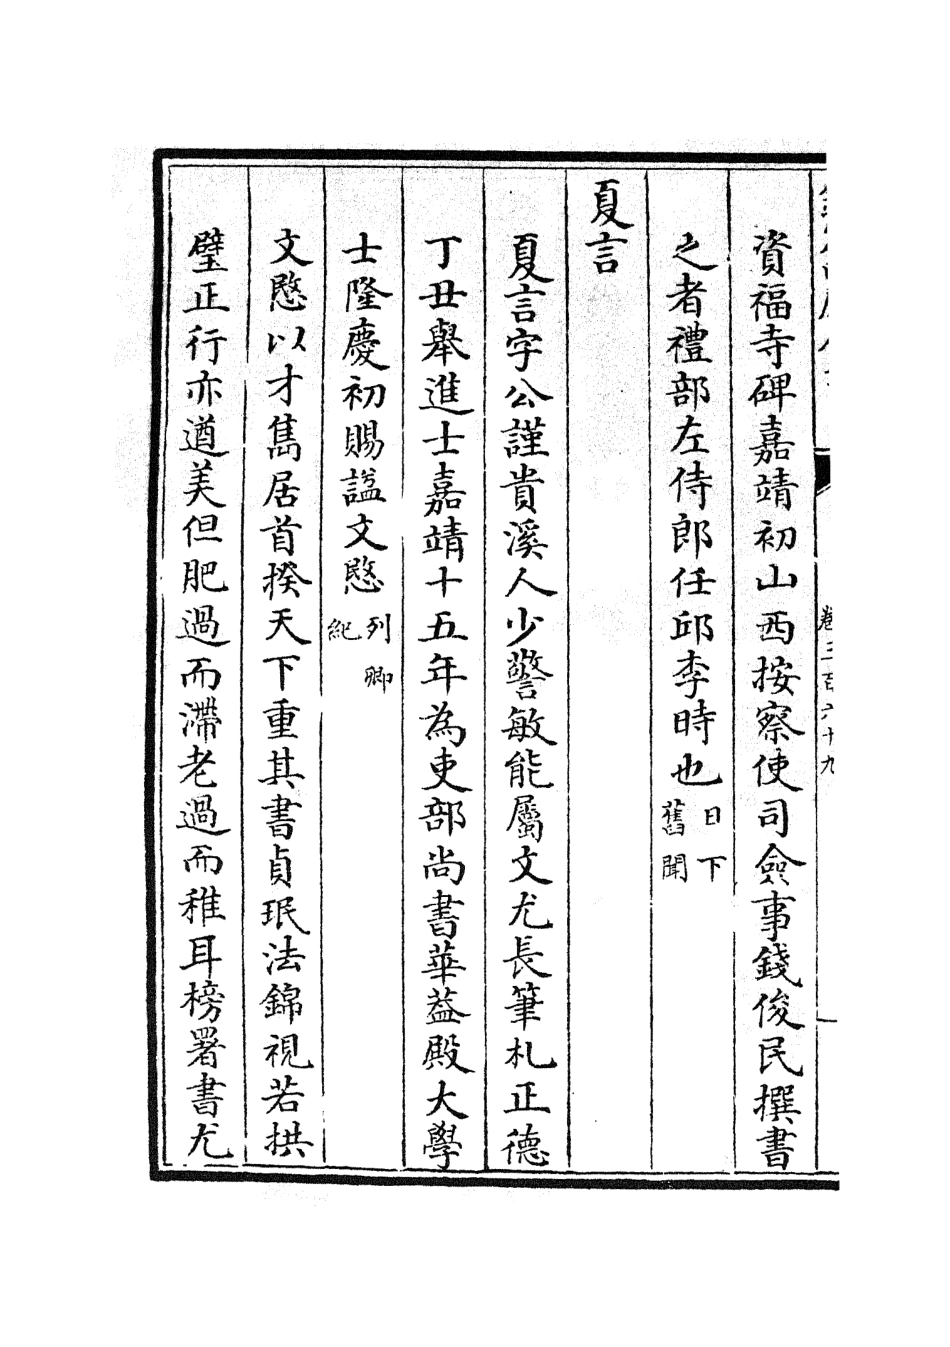 卷三百六十九
資福寺碑嘉靖初山西按察使司僉事錢俊民撰書
之者禮部左侍郎任邱李時也日下舊聞
夏言
夏言字公謹貴溪人少警敏能屬文尤長筆札正德
丁丑舉進士嘉靖十五年為吏部尚書華益殿大學
士隆慶初賜諡文愍列卿紀
文愍以才雋居首揆天下重其書貞珉法錦視若拱
璧正行亦遒美但肥過而滯老過而稚耳榜署書尤